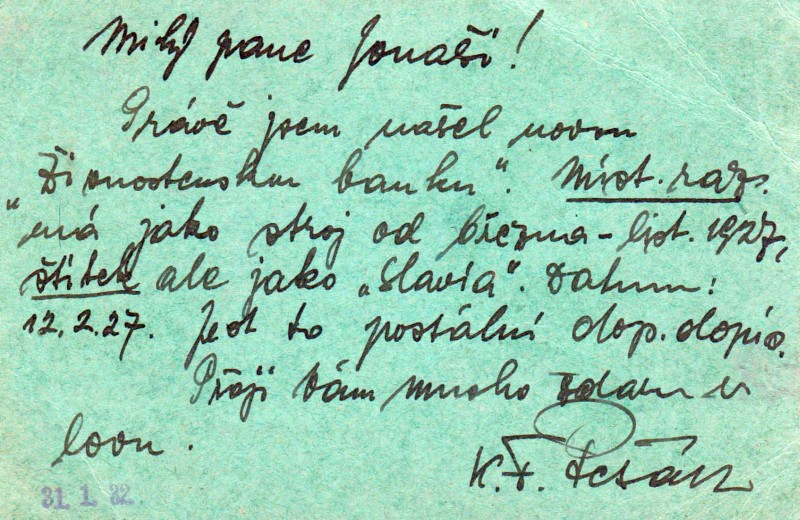 Milý pane Jonáši!
Právě jsem našel novou
„Živnostenskou banku“. Míst. raz.
má jako stroj od března-list. 1927,
štítek ale jako „Slavia“. Datum:
12.2.27. Jest to postální dop. dopis.
Přeji Vám mnoho zdaru v
lovu.
K.F.
31. 1. 32.